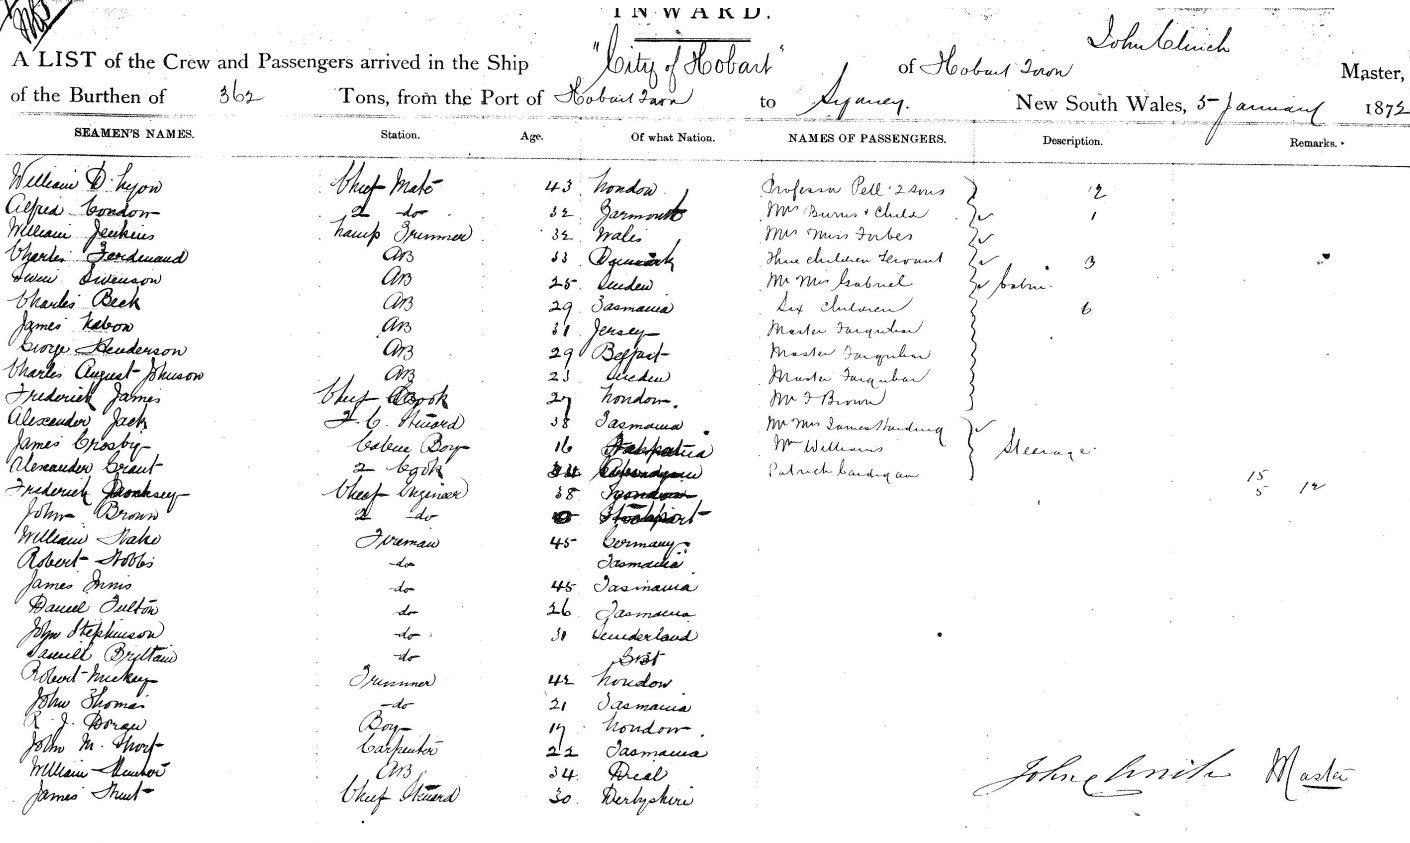 INWARD.
John Clinch
A LIST of the Crew and Passengers arrived in the Ship "City of Hobart" of Hobart Town Master,
of the Burthen of 362 Tons, from the Port of Hobart Town to Sydney. New South Wales, 5 January 1872
SEAMEN'S NAMES. Station. Age. Of what Nation. NAMES OF PASSENGERS. Description. Remarks.
William D. Lyon Chief Mate 43 London Professor Pell 2 sons 2
Alfred Condon 2 do 32 Yarmouth Mrs Burns & Child 1
William Jenkins Lamp Trimmer 32 Wales Mrs Miss Forbes
Charles Ferdinand AB 33 Denmark Three children Servant 3
Swenson AB 25 Sweden Mr Mrs Gabriel Cabin.
Charles Beck AB 29 Tasmania Six Children 6
James AB 31 Jersey Master Farquhar
George Henderson AB 29 Belfast Master Farquhar
Charles August Johnson AB 23 Sweden Master Farquhar
Frederick James Chief Cook 27 London. Mr F Brown
Alexander Jack 2. C. Steward 38 Tasmania Mr Mrs James Harding
James Crosby Boy 16 Mr Williams Steerage.
Alexander Grant 2 Cook 34 Patrick Cardigan 15
Frederick Chief Engineer 38 London 5 12
John Brown 2 do Stockport
William Fireman 45 Germany
Robert Hobbs do Tasmania
James Innis do 45 Tasmania
Daniel Fulton do 26 Tasmania
John Stephenson do 31 Sunderland
Brittain do
Robert Trimmer 42 London
John Thomas do 21 Tasmania
R. J. Doran Boy 17 London
John M. Short Carpenter 22 Tasmania
William AB 34 Deal John Clinch Master
James Chief Steward 30 Derbyshire